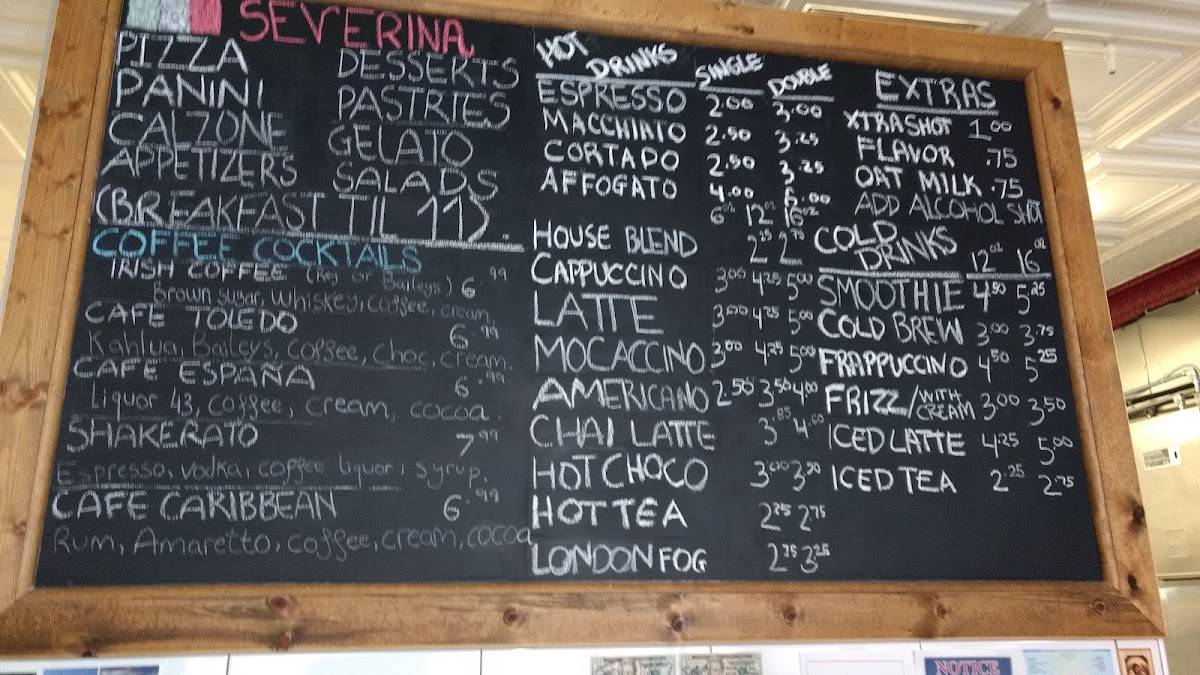 SEVERINA
PIZZA DESSERTS
PANINI PASTRIES
CALZONE GELATO
APPETIZERS SALADS
(BREAKFAST TIL 11)
COFFEE COCKTAILS
IRISH COFFEE (Reg or Baileys) 6.99
Brown sugar, whiskey, coffee, cream
CAFE TOLEDO 6.99
Kahlua, Baileys, coffee, choc, cream.
CAFE ESPAÑA 6.99
Liquor 43, coffee, cream, cocoa.
SHAKERATO 7.99
Espresso, vodka, coffee liquor, syrup.
CAFE CARIBBEAN 6.99
Rum, Amaretto, coffee, cream, cocoa
HOT DRINKS SINGLE DOUBLE
ESPRESSO 2.00 3.00
MACCHIATO 2.50 3.25
CORTADO 2.50 3.25
AFFOGATO 4.00 6.00
6oz 12oz 16oz
HOUSE BLEND 2.25 2.75
CAPPUCCINO 3.00 4.25 5.00
LATTE 3.00 4.25 5.00
MOCACCINO 3.00 4.25 5.00
AMERICANO 2.50 3.50 4.00
CHAI LATTE 3.85 4.60
HOT CHOCO 3.00 3.50
HOT TEA 2.25 2.75
LONDON FOG 2.75 3.25
EXTRAS
XTRA SHOT 1.00
FLAVOR .75
OAT MILK .75
ADD ALCOHOL SHOT
COLD DRINKS 12oz 16oz
SMOOTHIE 4.50 5.25
COLD BREW 3.00 3.75
FRAPPUCCINO 4.50 5.25
FRIZZ/WITH CREAM 3.00 3.50
ICED LATTE 4.25 5.00
ICED TEA 2.25 2.75
NOTICE